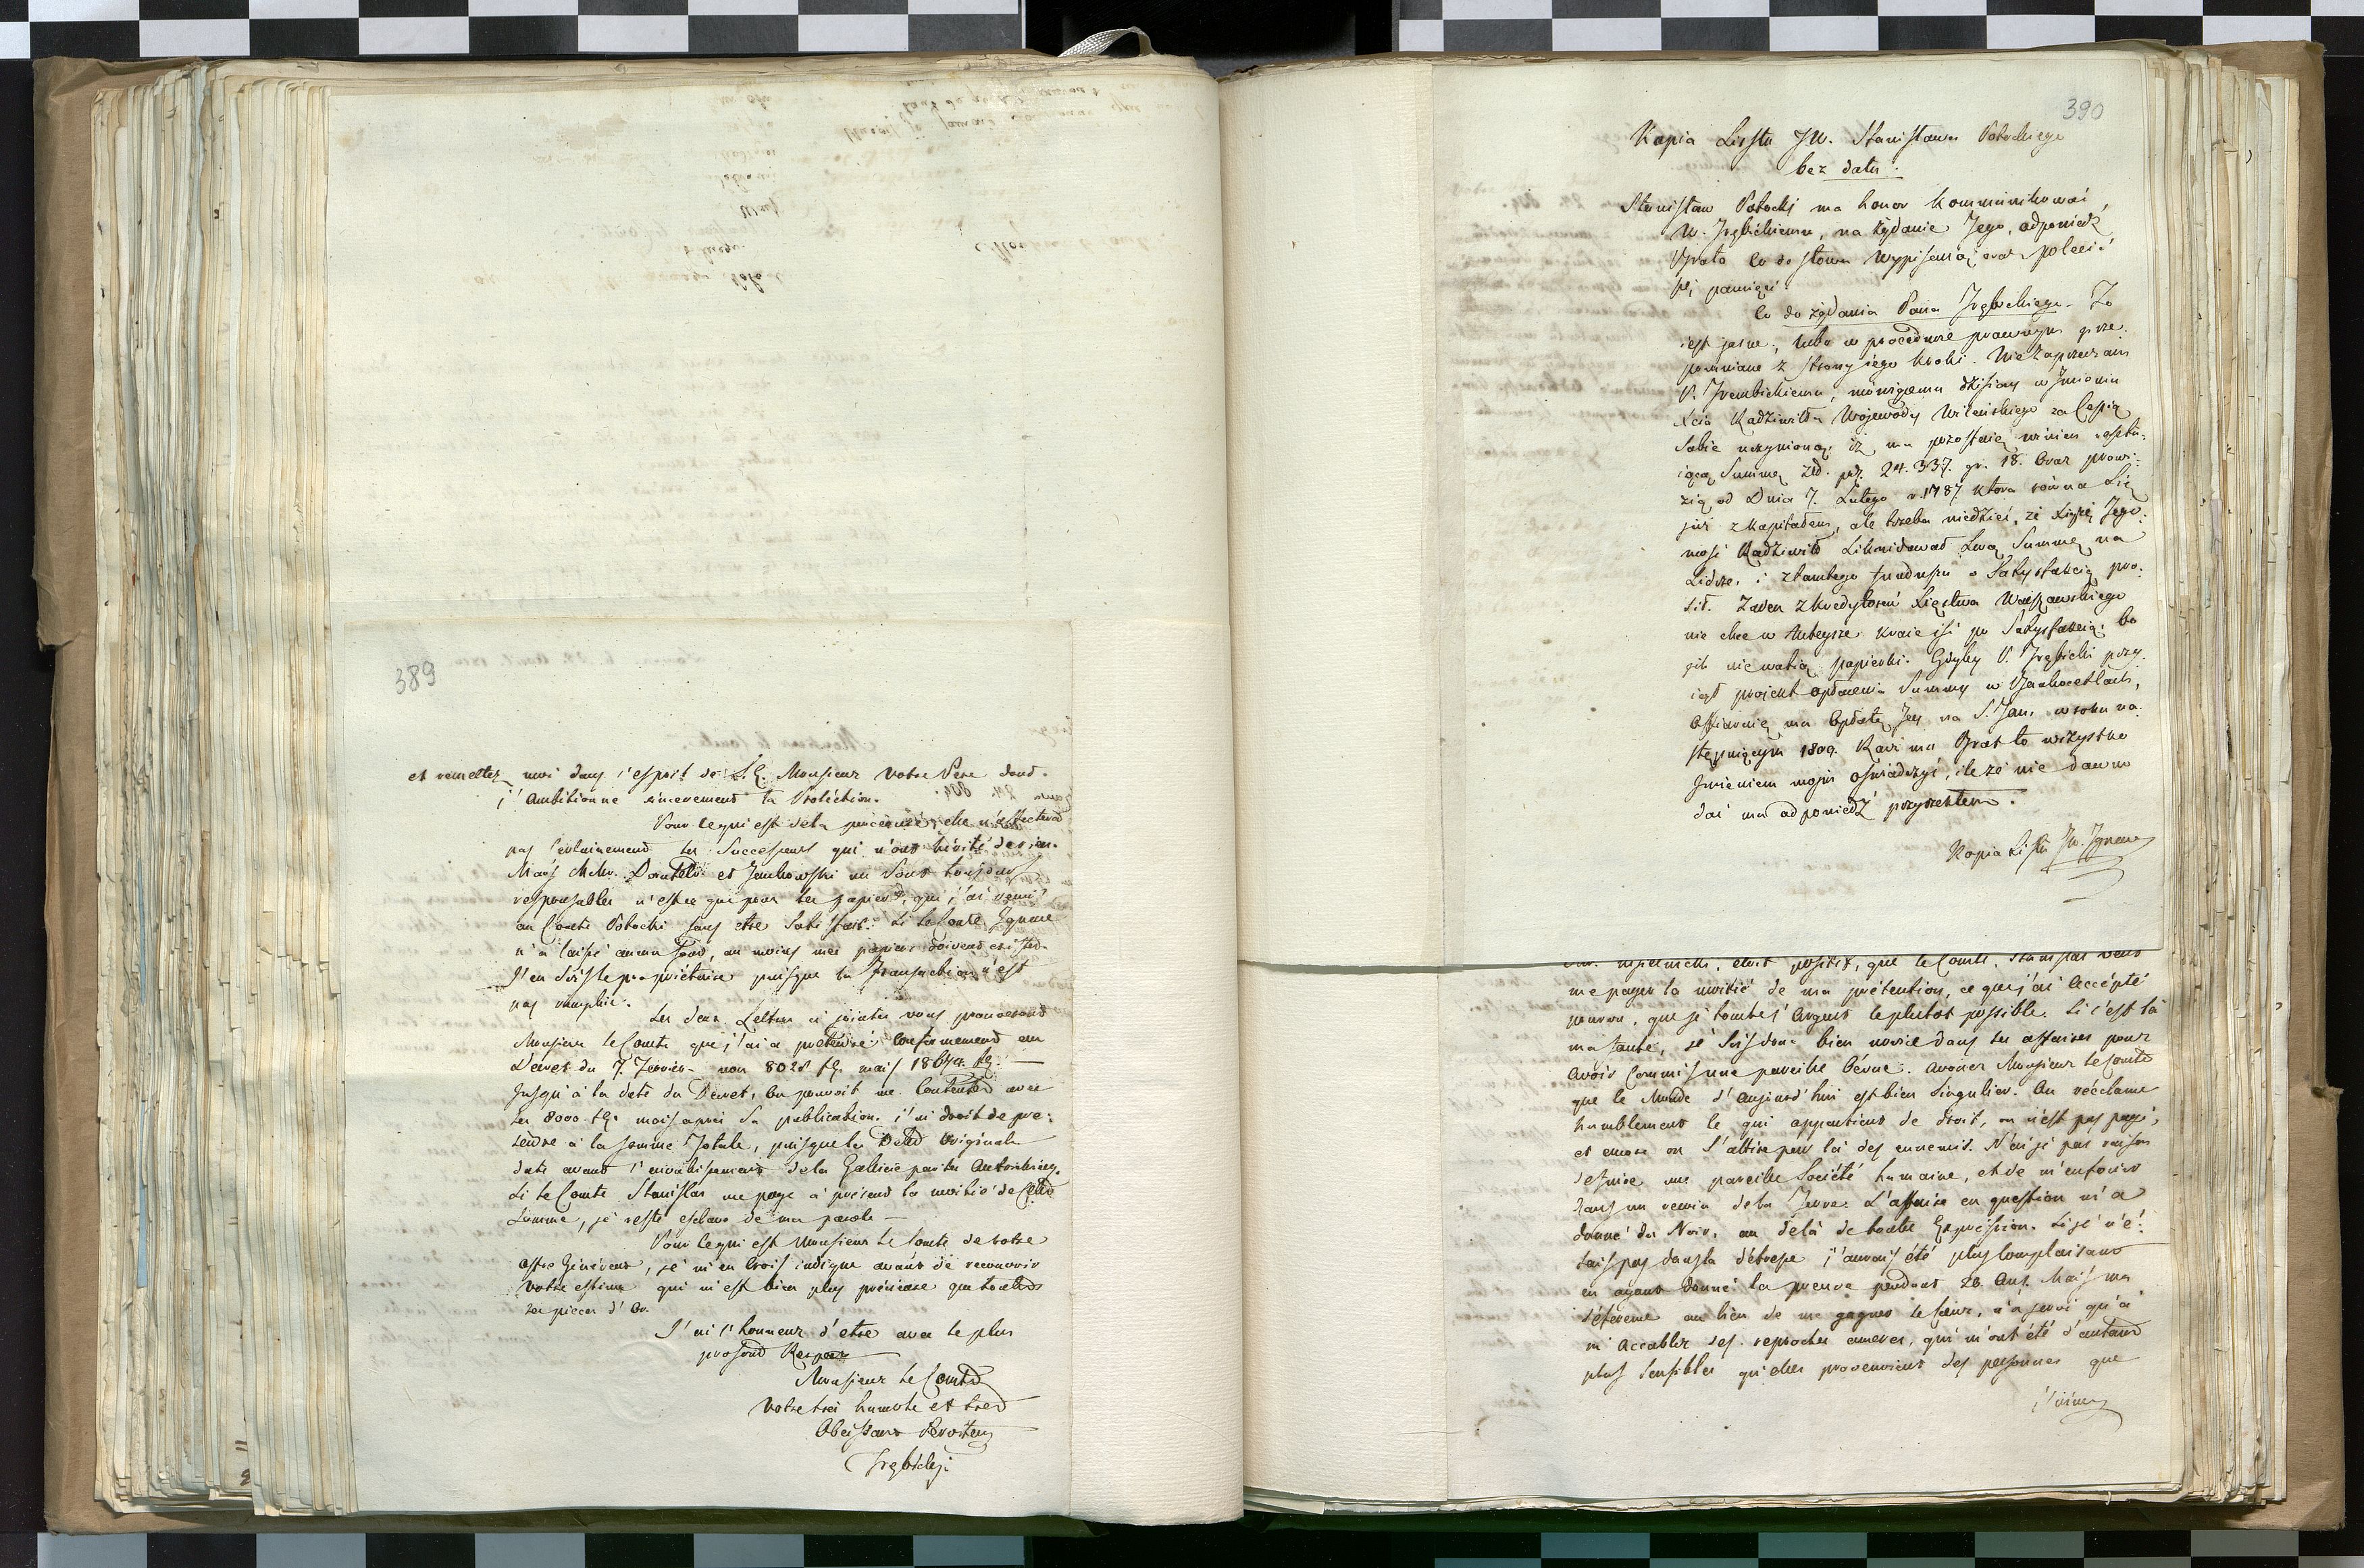 389
et remettez moi dans l'esprit de S. E. Monsieur Votre Pere dont
j'ambitionne sincerement la Protéction.
Pour le qui est de la procedure, elle n'affecteroit
pas certainement les Successeurs qui n'ont hérité de rien.
Mais M. Mr. et Jankowski me sont toujours
responsables n'est ce que pour les papiers, que j'ai remis
au Comte Potocki sans etre Satisfait. Si le Comte Ignace
n'a laissé aucun fond, au moins mes papiers doivent exister.
J'en suis le propriétaire puisque la Transaction n'est
pas remplie.
Les deux Lettres ci jointes vous prouveront
Monsieur le Comte que j'ai a pretendre conformement au
Décret du 7. Janvier non 8028 fl. mais
Jusqu'à la date du Décret, on pouvoit me Contenter avec
les 8000 fl. mais après sa publication j'ai droit de pre-
tendre à la somme Totale, puisque la Dette Originale
date avant l'envahissement de la Gallicie par les Autrichiens.
Si le Comte Stanislas me paye à présent la moitié de Cette
Somme, je reste esclave de ma parole —
Pour le qui est Monsieur le Comte de votre
offre Généreux, je m'en crois indigne avant de recouvrir
votre estime qui m'est bien plus précieuse que toutes
les pieces d'Or.
J'ai l'honneur d'etre avec le plus
profond Respect
Monsieur le Comte
Votre très humble et tres
Obeissant Serviteur
Trębicki
390
Kopia Listu JW. Stanisława Potockiego
bez daty.
Stanisław Potocki ma honor kommunikować,
W. Trębickiemu, na żądanie Jego, odpowiedź
Brata co do słowa wypisaną oraz polecić
się pamięci.
Co do żądania Pana Trębickiego. To
iest jasne, lubo w procedurze prawnym prze-
pomniane z strony iego kroki. Nie zaprzeczam
P. Trembickiemu, mówiącemu dzisiay w Imieniu
Xcia Radziwiłła Wojewody Wileńskiego za Cessią
Sobie uczynioną, iż ma pozostaię winien
iącą Summę Złł. pl. 24.337. gr. 18. Oraz prowi-
zią od Dnia 7. Lutego r. 1787 która równa Się
już z kapitałem, ale trzeba wiedzieć, że Xiąże Jego-
mość Radziwiłł Likwidował Swą Summę na
Lidze, i z tamtego funduszu o Satysfakcią pro-
sił. Żaden z kredytorów Xięstwa Warszawskiego
nie chce w Tuteysze kraie iść po Satysfakcią, bo
ich nie wabią papierki. Gdyby P. Trębicki przy-
iął projekt opłacenia Summy w Bankocetlach,
Offiaruię mu Opłatę Jey na S. Jan, w roku na-
stępuiącym 1809. Racz mu Brat to wszystko
Imieniem moim oświadczyć, ileże nie dawno
dać mu odpowiedź przyrzekłem.
Kopia Listu JW. Ignacego
etoit positif, que le Comte Stanislas veut
me payer la moitié de ma prétention, ce que j'ai accépté
pourvu, que je touche l'Argent le plutot possible. Si c'est là
ma faute, je suis donc bien novice dans les affaires pour
avoir Commis une pareille bévue. Avouez Monsieur le Comte
que le Monde d'aujourd'hui est bien Singulier. On réclame
humblement le qui appartient de droit, on n'est pas payé,
et encore on s'attire par là des ennemis. N'ai je pas raison
de fuire une pareille Société humaine, et de m'enfouir
dans un recoin de la Terre. L'affaire en question m'a
donné du Noir, au delà de toute Expréssion. Si je n'é-
tais pas dans la détresse j'aurais été plus Complaisant
en ayant donné la preuve pendant 20 Ans. Mais ma
déference au lieu de me gagner le Cœur, n'a servi qu'à
m'accabler des reproches amères, qui m'ont été d'autant
plus Sensibles qu'elles provenoient des personnes que
j'aimes